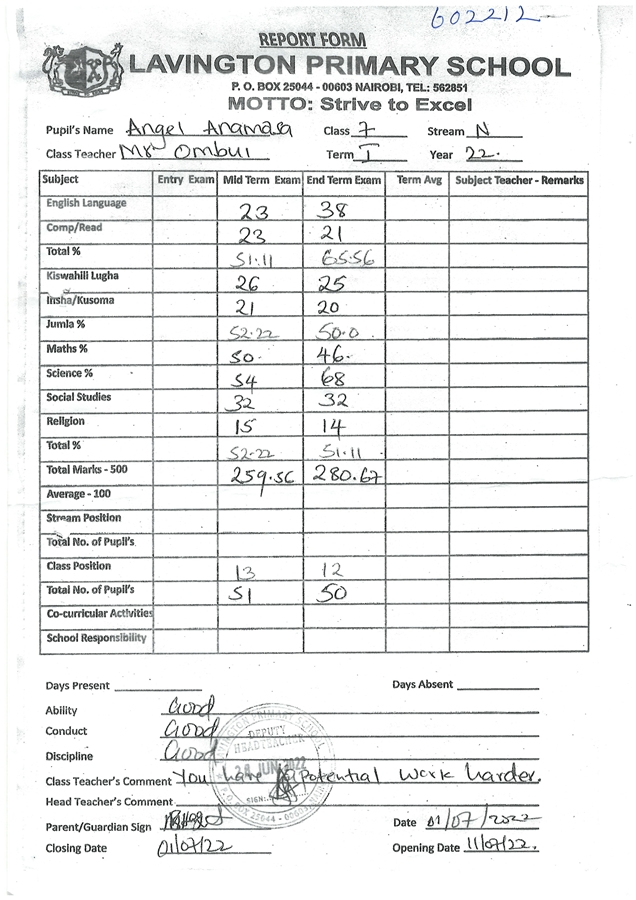 602212
REPORT FORM
LAVINGTON PRIMARY SCHOOL
P. O. BOX 25044 - 00603 NAIROBI, TEL: 562851
MOTTO: Strive to Excel
Pupil's Name Angel Anamasa Class 7 Stream N
Class Teacher Mr Ombui Term I Year 22.
Subject Entry Exam Mid Term Exam End Term Exam Term Avg Subject Teacher - Remarks
English Language 23 38
Comp/Read 23 21
Total % 51.11 65.56
Kiswahili Lugha 26 25
Insha/Kusoma 21 20
Jumla % 52.22 50.0
Maths % 50. 46.
Science % 54 68
Social Studies 32 32
Religion 15 14
Total % 52.22 51.11
Total Marks - 500 259.56 280.67
Average - 100
Stream Position
Total No. of Pupil's
Class Position 13 12
Total No. of Pupil's 51 50
Co-curricular Activities
School Responsibility
Days Present Days Absent
Ability Good
Conduct Good
Discipline Good
LAVINGTON PRIMARY SCHOOL
DEPUTY
HEADTEACHER
28 JUN 2022
SIGN:
P.O. BOX 25044 - 00603 NAIROBI
Class Teacher's Comment You have Potential Work harder.
Head Teacher's Comment
Parent/Guardian Sign Date 01/07/2022
Closing Date 01/07/22 Opening Date 11/07/22.